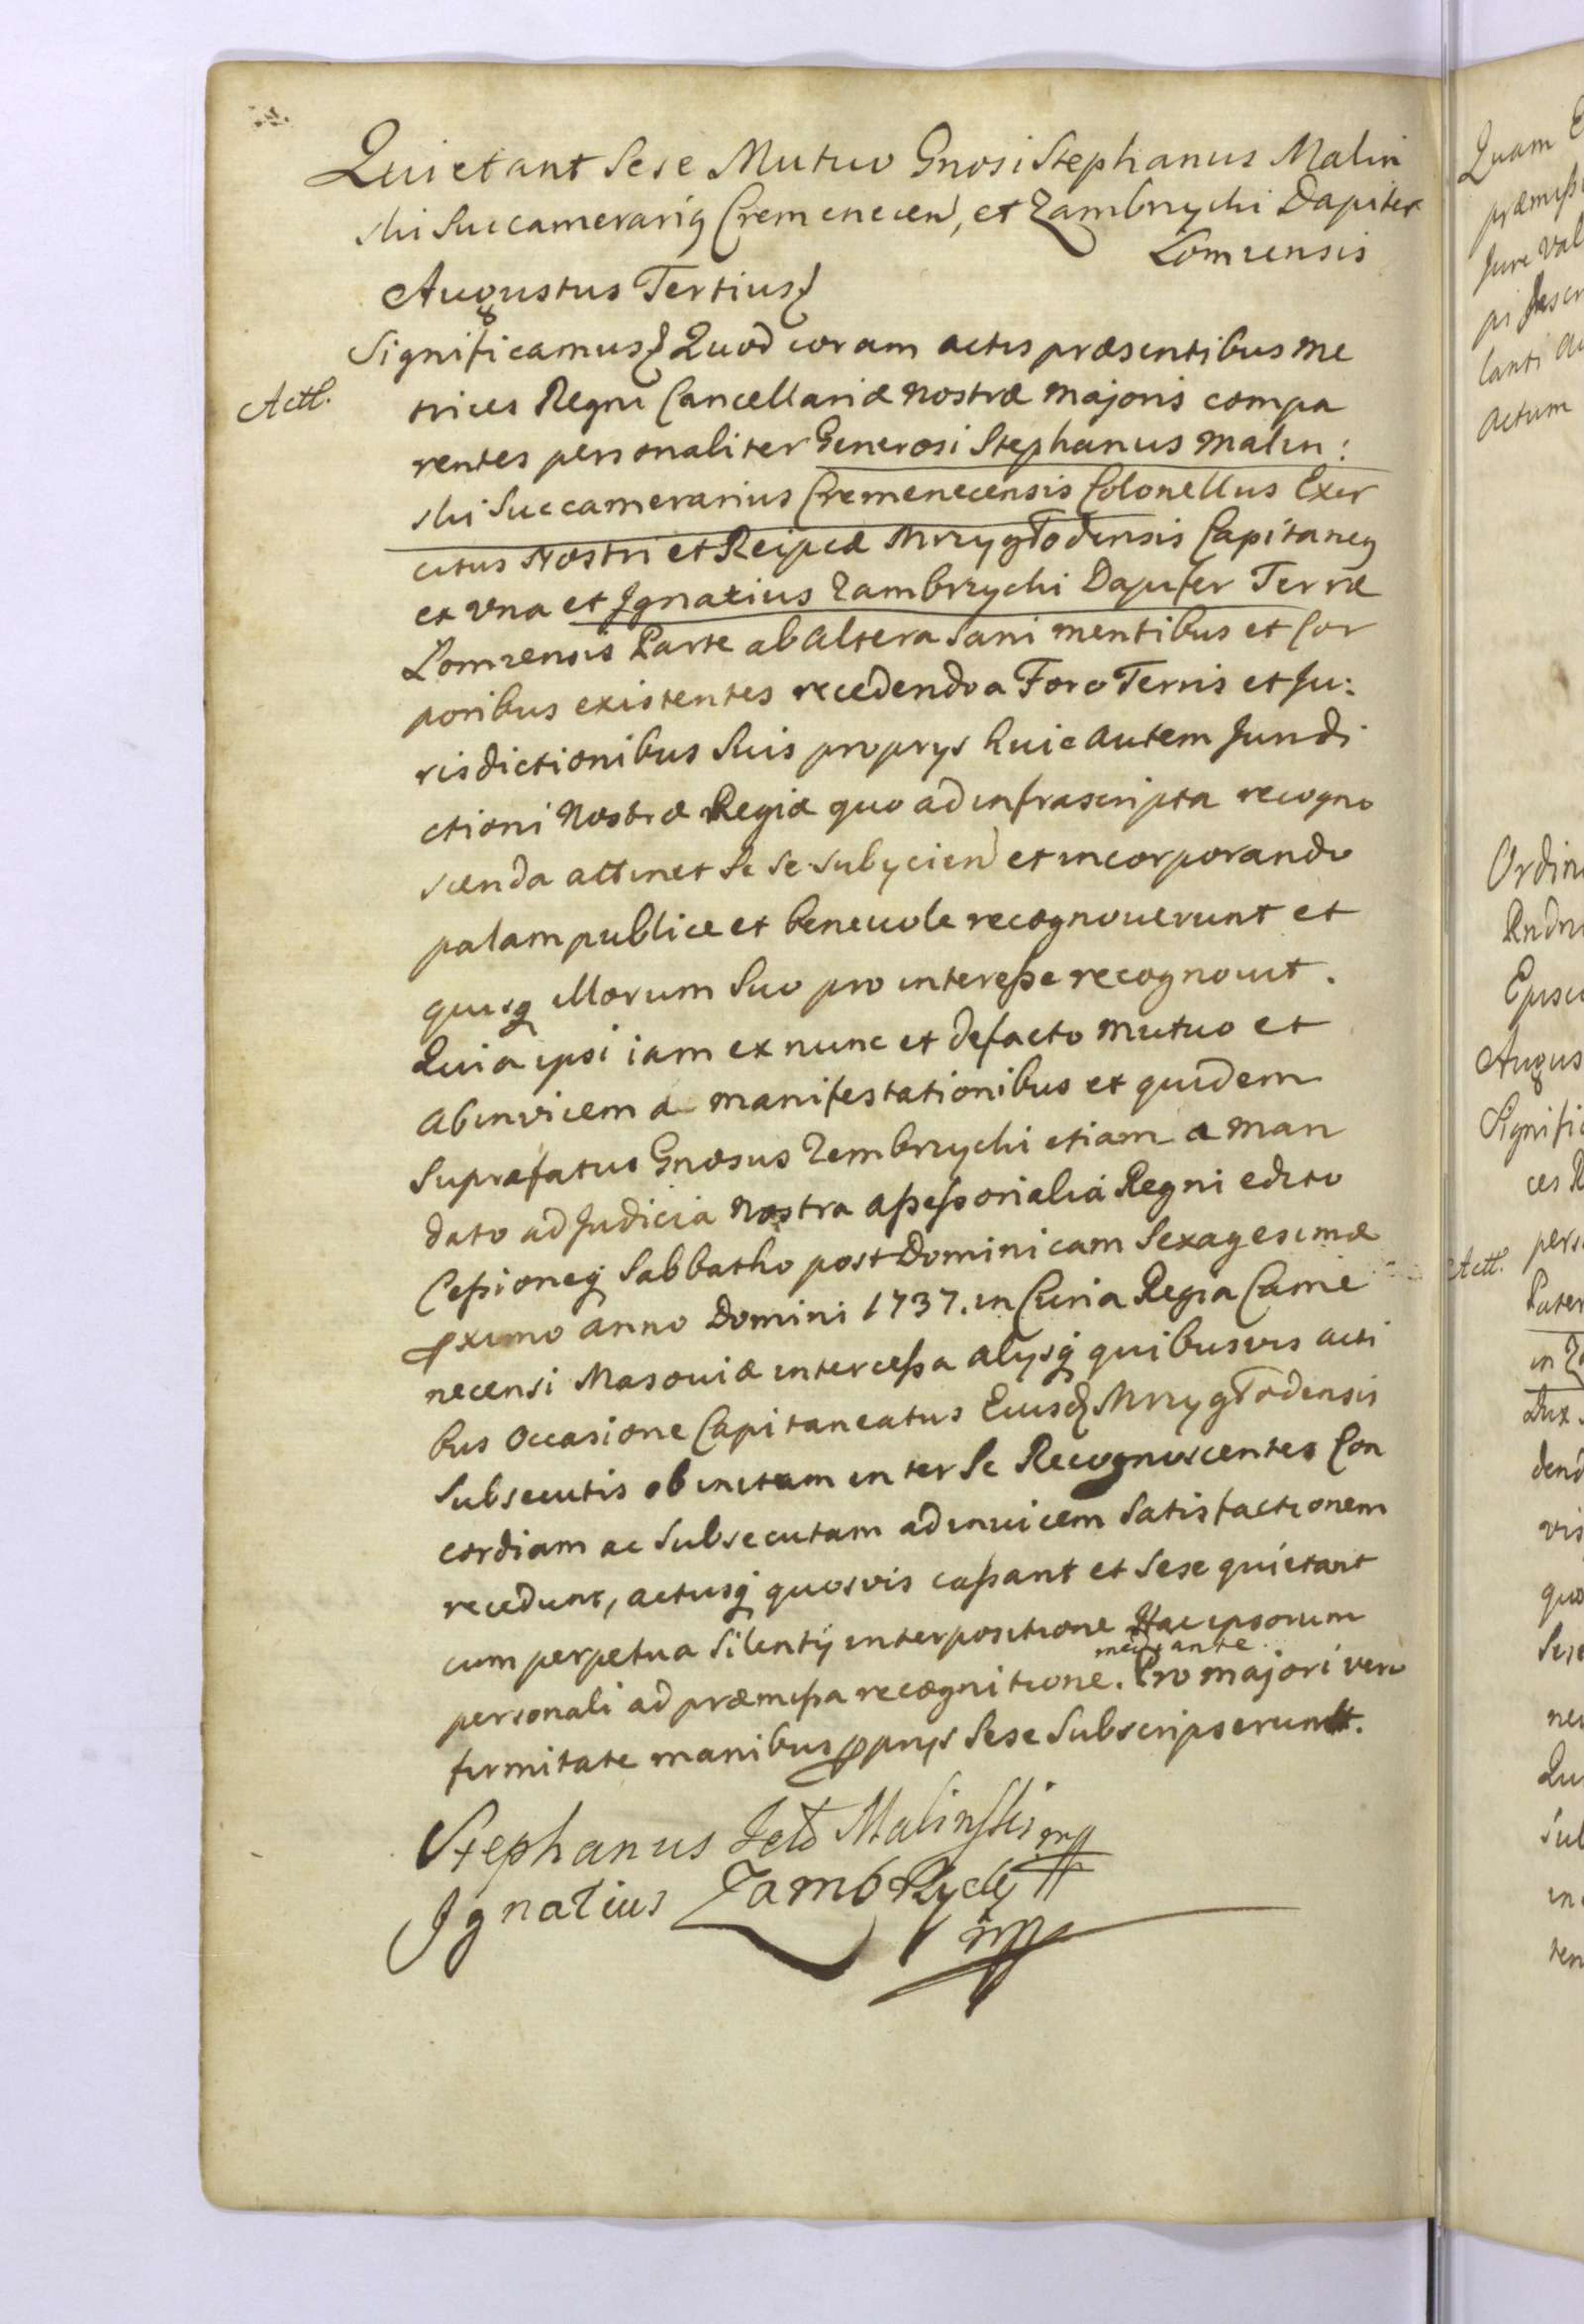 Quietant Sese Mutuo Gnosi Stephanus Malin
ski Succamerarig Cremenecen, et Zambrzycki Dapifer
Łomzensis
Augustus Tertius
Significamus Quod coram actis præsentibus me
Actt.
trices Regni Cancellariæ nostræ majoris compa
rentes personaliter Generosi Stephanus Malin:
ski Succamerarius Cremenecensis Colonellus Exer
citus Nostri et Reipcæ Mrzygłodensis Capitaneg
ex una et Ignatius Zambrzycki Dapifer Terræ
Łomzensis Parte ab altera sani mentibus et Cor
poribus existentes recedendo a Foro Terris et Ju:
risdictionibus Suis proprys huic autem Jurisdi
ctioni Nostræ Regiæ quo ad infrascripta recogno
scenda attinet se se subycien et incorporando
palam publice et benevole recognouerunt et
quisq illorum Suo pro interesse recognouit.
Quia ipsi iam ex nunc et defacto mutuo et
abinvicem a manifestationibus et quidem
Suprafatus Gnosus Zembrzycki etiam a man
dato ad Judicia nostra assessorialia Regni edito
Cessioneq Sabbatho post Dominicam Sexagesimæ
pximo anno Domini 1737. in Curia Regia Came
necensi Masoviæ intercessa alysq quibusvis acti
bus occasione Capitaneatus Eiusd Mrzygłodensis
Subsecutis ob initam inter Se Recognoscentes Con
cordiam ac subsecutam adinvicem satisfactionem
recedunt, actusq quosvis cassant et sese quietant
cum perpetua silentij interpositione Hac ipsorum
mediante
personali ad præmissa recognitione. Pro majori vero
firmitate manibus pprys Sese Subscripserunt.
Stephanus Malinski mp
Ignatius Zambrzycki
mpa
Quam
Actum
Ordin
Augus
Signifi
Actt.